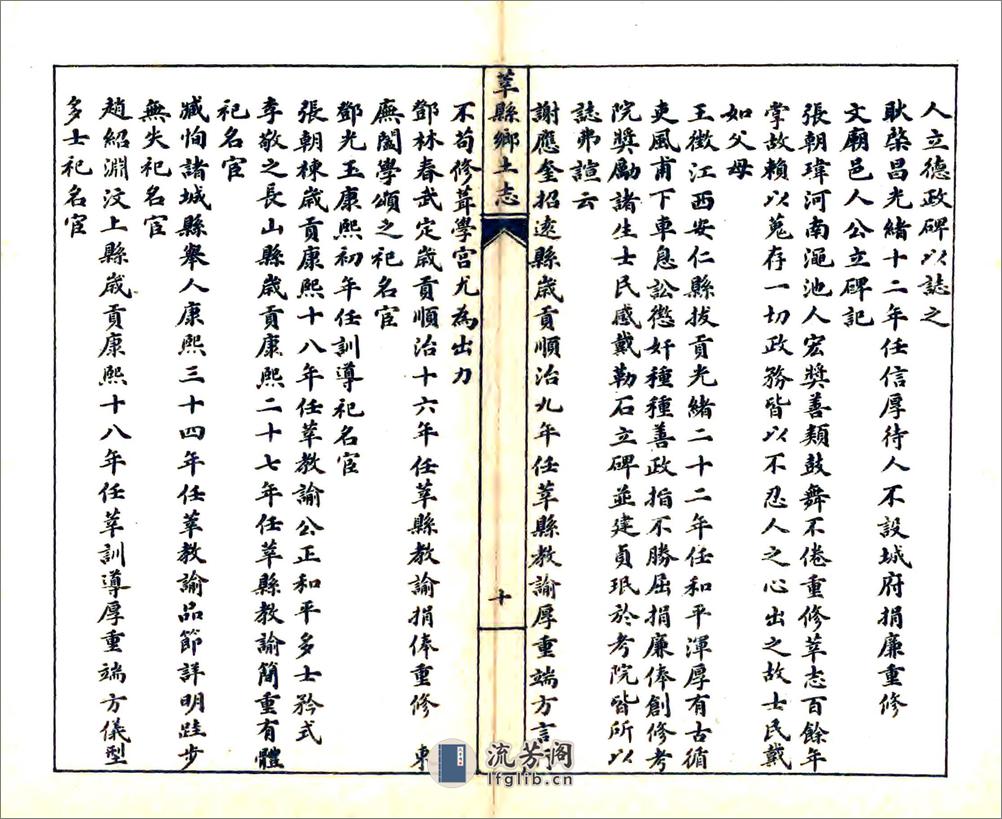 人立德政碑以誌之
耿棨昌光緒十二年任信厚待人不設城府捐廉重修
文廟邑人公立碑記
張朝瑋河南澠池人宏獎善類鼓舞不倦重修莘志百餘年
掌故賴以蒐存一切政務皆以不忍人之心出之故士民戴
如父母
王徵江西安仁縣拔貢光緒二十二年任和平渾厚有古循
吏風甫下車息訟懲奸種種善政指不勝屈捐廉俸創修考
院獎勵諸生士民感戴勒石立碑並建貞珉於考院皆所以
誌弗諼云
謝應奎招遠縣歲貢順治九年任莘縣教諭厚重端方言
莘縣鄉土志
十
不苟修葺學宮尤為出力
鄧林春武定歲貢順治十六年任莘縣教諭捐俸重修 東
廡闔學頌之祀名宦
鄧光玉康熙初年任訓導祀名宦
張朝棟歲貢康熙十八年任莘教諭公正和平多士矜式
李敬之長山縣歲貢康熙二十七年任莘縣教諭簡重有體
祀名宦
臧恂諸城縣舉人康熙三十四年任莘教諭品節詳明跬步
無失祀名宦
趙紹淵汶上縣歲貢康熙十八年任莘訓導厚重端方儀型
多士祀名宦
流芳阁
lfglib.cn